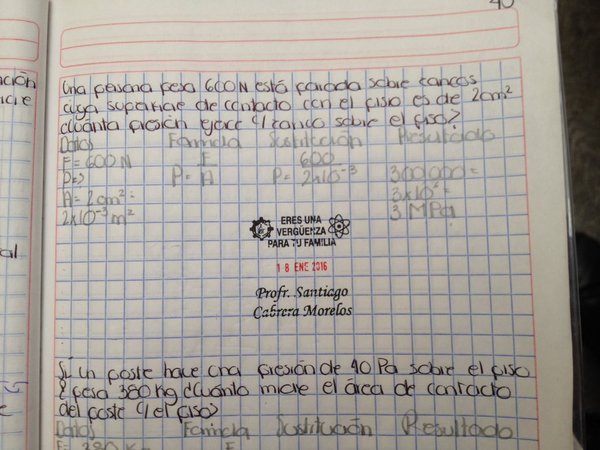 40
Una persona pesa 600 N está parada sobre tancos
cuya superficie de contacto con el piso es de 2cm²
¿Cuánta presión ejerce c/tanco sobre el piso?
Datos Formula Sustitución Resultado
F= 600 N F 600 300 000 =
P=> P= A P= 2x10⁻³ 3x10⁶ =
A= 2cm² = 3 MPa
2x10⁻³ m²
ERES UNA
VERGÜENZA
PARA TU FAMILIA
18 ENE 2016
Profr. Santiago
Cabrera Morelos
Si un poste hace una presión de 40 Pa sobre el piso
& pesa 380 kg ¿Cuánto mide el área de contacto
del poste c/ el piso?
Datos Formula Sustitución Resultado
ación
al